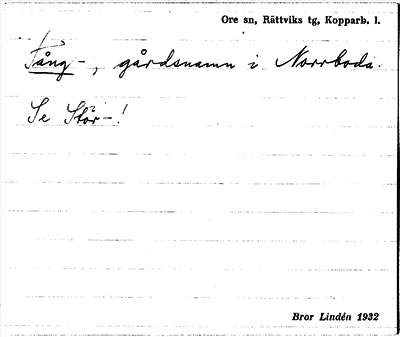 Ore sn, Rättviks tg, Kopparb. l.
Tång-, gårdsnamn i Norrboda.
Se Stor-!
Bror Lindén 1932